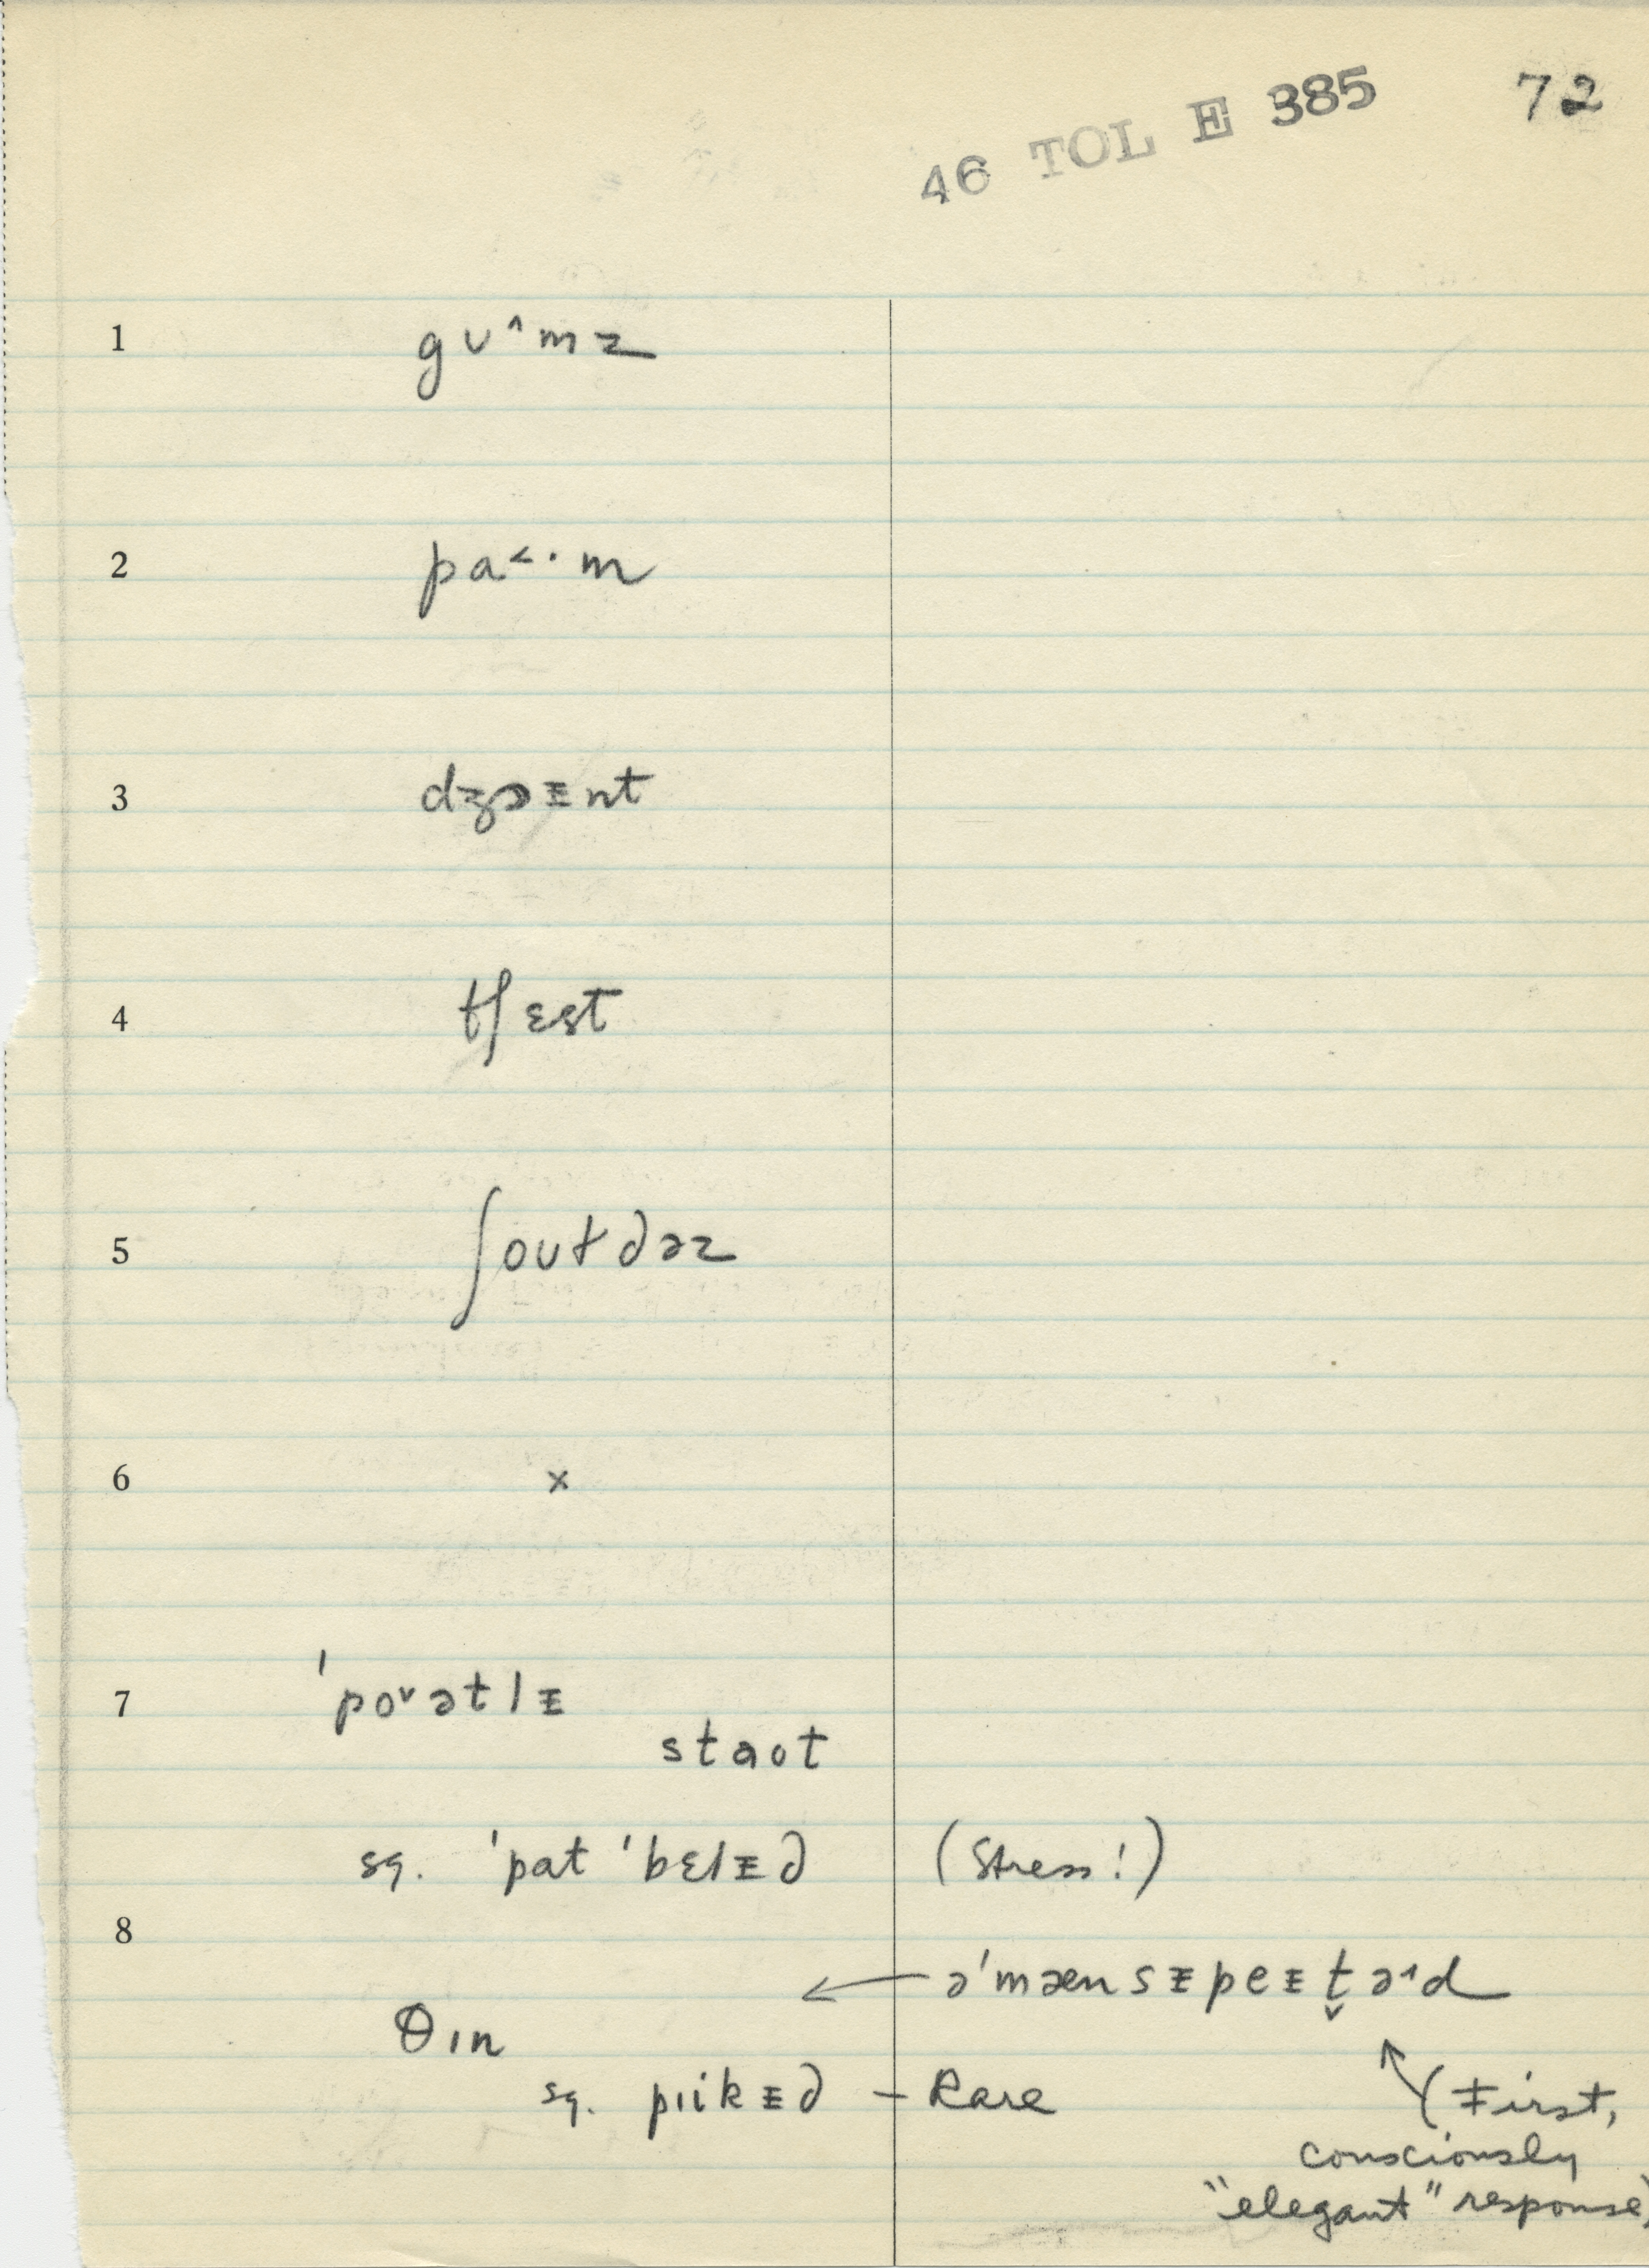 46 TOL E 385 72
1 gʊ^mz
2 pa˂·m
3 dʒɔᵻnt
4 tʃɛst
5 ʃoʊtdəz
6 x
7 ˈpoˇətlᵻ
staʊt
sq. ˈpat ˈbɛlᵻd (Stress!)
8
← əˈmænsᵻpeᵻt̬ə^d
θɪn
sq. pɪikᵻd – Rare
(First,
consciously
"elegant" response)